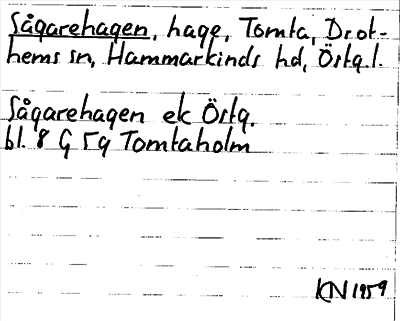 Sågarehagen, hage, Tomta, Drot-
hems sn, Hammarkinds hd, Östg.l.
Sågarehagen ek Östg.
bl. 8 G 5g Tomtaholm
KN 1959